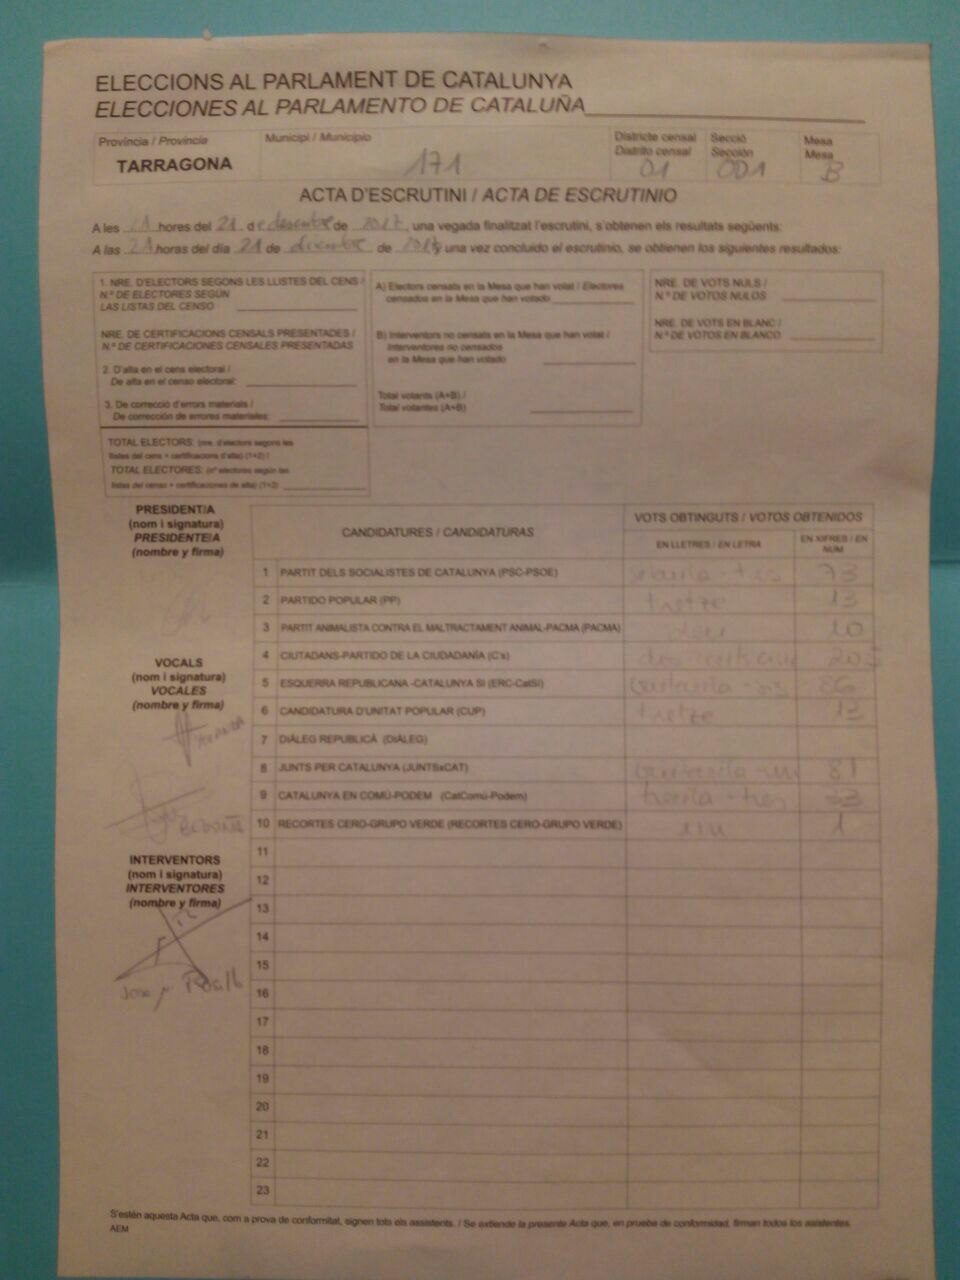 ELECCIONS AL PARLAMENT DE CATALUNYA
ELECCIONES AL PARLAMENTO DE CATALUÑA
Província / Provincia
TARRAGONA
Municipi / Municipio
171
Districte censal
Distrito censal
01
Secció
Sección
001
Mesa
Mesa
B
ACTA D'ESCRUTINI / ACTA DE ESCRUTINIO
A les 21 hores del 21 de desembre de 2017, una vegada finalitzat l'escrutini, s'obtenen els resultats següents:
A las 21 horas del día 21 de diciembre de 2017 y una vez concluido el escrutinio, se obtienen los siguientes resultados:
1. NRE. D'ELECTORS SEGONS LES LLISTES DEL CENS /
N.º DE ELECTORES SEGÚN
LAS LISTAS DEL CENSO
NRE. DE CERTIFICACIONS CENSALS PRESENTADES /
N.º DE CERTIFICACIONES CENSALES PRESENTADAS
2. D'alta en el cens electoral /
De alta en el censo electoral:
3. De correcció d'errors materials /
De corrección de errores materiales:
TOTAL ELECTORS: (nre. d'electors segons les
llistes del cens + certificacions d'alta) (1+2) /
TOTAL ELECTORES: (nº electores según las
listas del censo + certificaciones de alta) (1+2)
A) Electors censats en la Mesa que han votat / Electores
censados en la Mesa que han votado
B) Interventors no censats en la Mesa que han votat /
Interventores no censados
en la Mesa que han votado
Total votants (A+B) /
Total votantes (A+B)
NRE. DE VOTS NULS /
N.º DE VOTOS NULOS
NRE. DE VOTS EN BLANC /
N.º DE VOTOS EN BLANCO
PRESIDENT/A
(nom i signatura)
PRESIDENTE/A
(nombre y firma)
VOCALS
(nom i signatura)
VOCALES
(nombre y firma)
INTERVENTORS
(nom i signatura)
INTERVENTORES
(nombre y firma)
Jose
CANDIDATURES / CANDIDATURAS
VOTS OBTINGUTS / VOTOS OBTENIDOS
EN LLETRES / EN LETRA
EN XIFRES / EN NÚM
1 PARTIT DELS SOCIALISTES DE CATALUNYA (PSC-PSOE) setanta-tres 73
2 PARTIDO POPULAR (PP) tretze 13
3 PARTIT ANIMALISTA CONTRA EL MALTRACTAMENT ANIMAL-PACMA (PACMA) deu 10
4 CIUTADANS-PARTIDO DE LA CIUDADANÍA (C's) dos-cents cinc 205
5 ESQUERRA REPUBLICANA -CATALUNYA SÍ (ERC-CatSí) vuitanta-sis 86
6 CANDIDATURA D'UNITAT POPULAR (CUP) tretze 13
7 DIÀLEG REPUBLICÀ (DIÀLEG)
8 JUNTS PER CATALUNYA (JUNTSxCAT) vuitanta-un 81
9 CATALUNYA EN COMÚ-PODEM (CatComú-Podem) trenta-tres 33
10 RECORTES CERO-GRUPO VERDE (RECORTES CERO-GRUPO VERDE) un 1
11
12
13
14
15
16
17
18
19
20
21
22
23
S'estén aquesta Acta que, com a prova de conformitat, signen tots els assistents. / Se extiende la presente Acta que, en prueba de conformidad, firman todos los asistentes
AEM